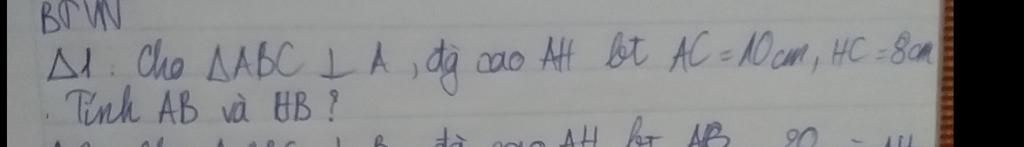 BTVN
Δ1: Cho ΔABC ⊥ A, đg cao AH bt AC = 10cm, HC = 8cm
. Tính AB và HB ?
cao AH bt AB 20